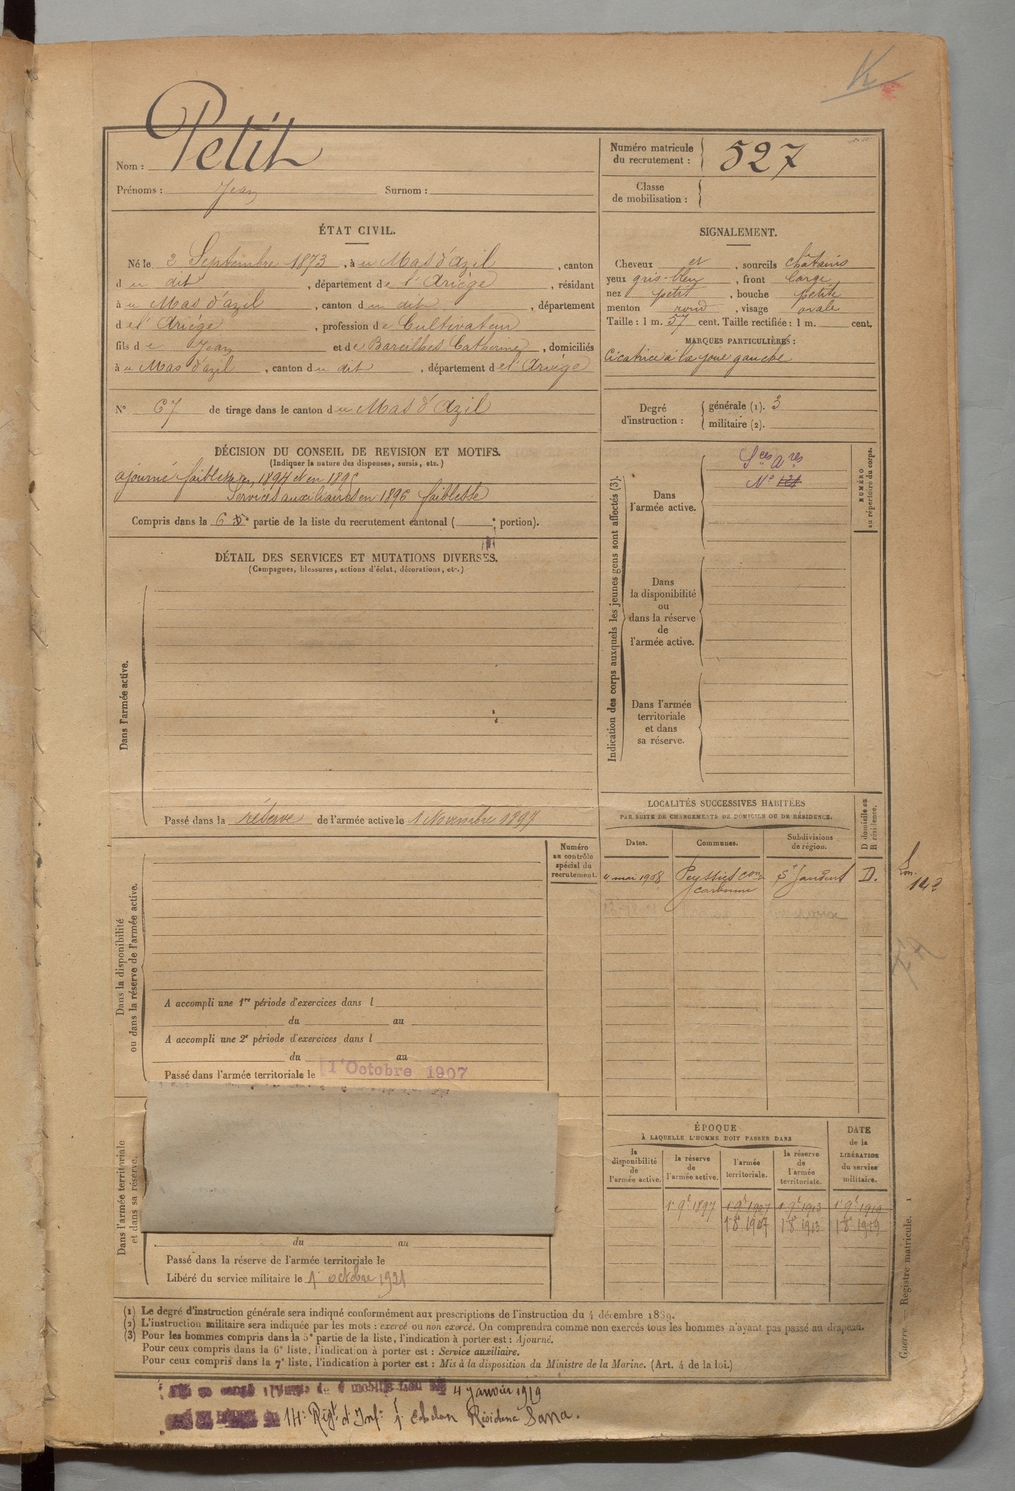 K
Nom : Petit
Prénoms : Jean Surnom :
Numéro matricule du recrutement : 527
Classe de mobilisation :
ÉTAT CIVIL.
Né le 2 Septembre 1873, à u Mas d'azil, canton
d u dit, département d e l'Ariège, résidant
à u Mas d'azil, canton d u dit, département
d e l'Ariège, profession d e Cultivateur
fils d e Jean et d e Bareilhes Catherine, domiciliés
à u Mas d'azil, canton d u dit, département d e l'Ariège
N° 67 de tirage dans le canton d u Mas d'Azil
SIGNALEMENT.
Cheveux et, sourcils châtains
yeux gris-bleu, front large
nez petit, bouche petite
menton rond, visage ovale
Taille : 1 m. 57 cent. Taille rectifiée : 1 m. cent.
MARQUES PARTICULIÈRES :
Cicatrice à la joue gauche
Degré d'instruction : générale (1). 3
militaire (2).
DÉCISION DU CONSEIL DE REVISION ET MOTIFS.
(Indiquer la nature des dispenses, sursis, etc.)
ajourné faiblesse en 1894 et en 1895
Services auxiliaires en 1896 faiblesse
Compris dans la 6e partie de la liste du recrutement cantonal ( e portion).
DÉTAIL DES SERVICES ET MUTATIONS DIVERSES.
(Campagnes, blessures, actions d'éclat, décorations, etc.)
Dans l'armée active.
Passé dans la réserve de l'armée active le 1 Novembre 1897
Indication des corps auxquels les jeunes gens sont affectés (3).
Dans l'armée active.
Sces Ares
N° 121
NUMÉRO au répertoire du corps.
Dans la disponibilité ou dans la réserve de l'armée active.
Dans l'armée territoriale et dans sa réserve.
LOCALITÉS SUCCESSIVES HABITÉES
PAR SUITE DE CHANGEMENTS DE DOMICILE OU DE RÉSIDENCE.
Dates. Communes. Subdivisions de région. D domicile ou R résidence.
4 mai 1908 Peyssies Con Carbonne St Gaudens D.
Numéro au contrôle spécial du recrutement.
Dans la disponibilité ou dans la réserve de l'armée active.
A accompli une 1re période d'exercices dans l
du au
A accompli une 2e période d'exercices dans l
du au
Passé dans l'armée territoriale le 1r Octobre 1907
Dans l'armée territoriale et dans sa réserve.
du au
Passé dans la réserve de l'armée territoriale le
Libéré du service militaire le 1r octobre 1921
ÉPOQUE
À LAQUELLE L'HOMME DOIT PASSER DANS
la disponibilité de l'armée active. la réserve de l'armée active. l'armée territoriale. la réserve de l'armée territoriale. DATE de la LIBÉRATION du service militaire.
1r 9e 1897 1r 9e 1907 1r 9e 1913 1r 9e 1919
1r 8e 1907 1r 8e 1913 1r 8e 1919
(1) Le degré d'instruction générale sera indiqué conformément aux prescriptions de l'instruction du 4 décembre 1889.
(2) L'instruction militaire sera indiquée par les mots : exercé ou non exercé. On comprendra comme non exercés tous les hommes n'ayant pas passé au drapeau.
(3) Pour les hommes compris dans la 5e partie de la liste, l'indication à porter est : Ajourné.
Pour ceux compris dans la 6e liste, l'indication à porter est : Service auxiliaire.
Pour ceux compris dans la 7e liste, l'indication à porter est : Mis à la disposition du Ministre de la Marine. (Art. 4 de la loi.)
Guerre. Registre matricule.
4 janvier 1919
14e Régt d'Infie Résidence Sana.